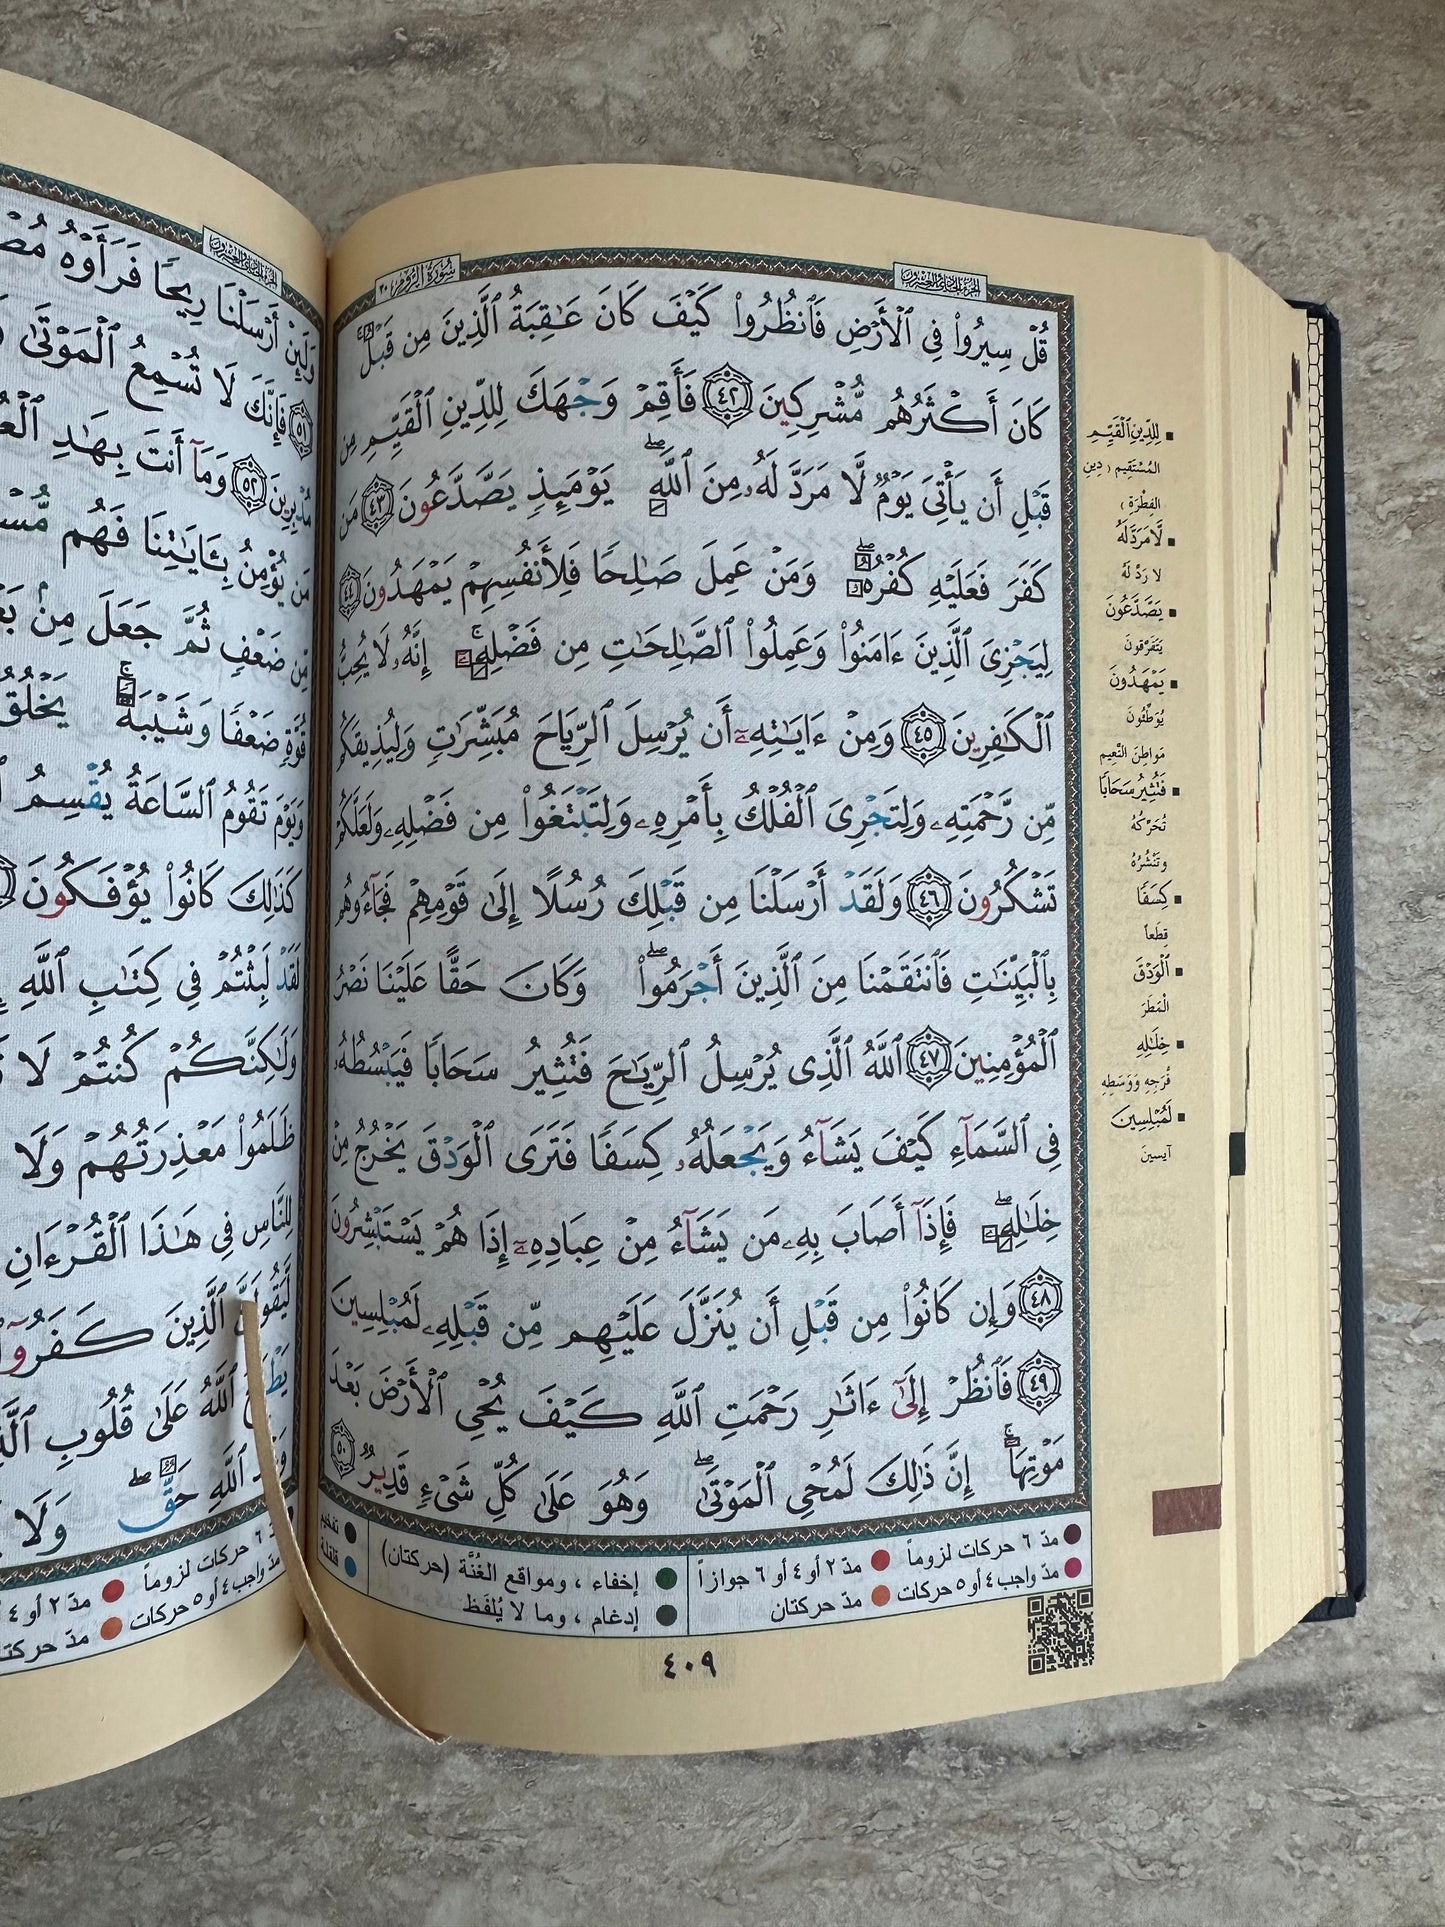 الجزء الحادي والعشرون
سُورَةُ الرُّومِ ٣٠
قُلْ سِيرُوا۟ فِى ٱلْأَرْضِ فَٱنظُرُوا۟ كَيْفَ كَانَ عَٰقِبَةُ ٱلَّذِينَ مِن قَبْلُ ۚ
كَانَ أَكْثَرُهُم مُّشْرِكِينَ ٤٢ فَأَقِمْ وَجْهَكَ لِلدِّينِ ٱلْقَيِّمِ مِن
قَبْلِ أَن يَأْتِىَ يَوْمٌ لَّا مَرَدَّ لَهُۥ مِنَ ٱللَّهِ ۖ يَوْمَئِذٍ يَصَّدَّعُونَ ٤٣ مَن
كَفَرَ فَعَلَيْهِ كُفْرُهُۥ ۖ وَمَنْ عَمِلَ صَٰلِحًا فَلِأَنفُسِهِمْ يَمْهَدُونَ ٤٤
لِيَجْزِىَ ٱلَّذِينَ ءَامَنُوا۟ وَعَمِلُوا۟ ٱلصَّٰلِحَٰتِ مِن فَضْلِهِۦٓ ۚ إِنَّهُۥ لَا يُحِبُّ
ٱلْكَٰفِرِينَ ٤٥ وَمِنْ ءَايَٰتِهِۦٓ أَن يُرْسِلَ ٱلرِّيَاحَ مُبَشِّرَٰتٍ وَلِيُذِيقَكُم
مِّن رَّحْمَتِهِۦ وَلِتَجْرِىَ ٱلْفُلْكُ بِأَمْرِهِۦ وَلِتَبْتَغُوا۟ مِن فَضْلِهِۦ وَلَعَلَّكُمْ
تَشْكُرُونَ ٤٦ وَلَقَدْ أَرْسَلْنَا مِن قَبْلِكَ رُسُلًا إِلَىٰ قَوْمِهِمْ فَجَآءُوهُم
بِٱلْبَيِّنَٰتِ فَٱنتَقَمْنَا مِنَ ٱلَّذِينَ أَجْرَمُوا۟ ۖ وَكَانَ حَقًّا عَلَيْنَا نَصْرُ
ٱلْمُؤْمِنِينَ ٤٧ ٱللَّهُ ٱلَّذِى يُرْسِلُ ٱلرِّيَٰحَ فَتُثِيرُ سَحَابًا فَيَبْسُطُهُۥ
فِى ٱلسَّمَآءِ كَيْفَ يَشَآءُ وَيَجْعَلُهُۥ كِسَفًا فَتَرَى ٱلْوَدْقَ يَخْرُجُ مِنْ
خِلَٰلِهِۦ ۖ فَإِذَآ أَصَابَ بِهِۦ مَن يَشَآءُ مِنْ عِبَادِهِۦٓ إِذَا هُمْ يَسْتَبْشِرُونَ
٤٨ وَإِن كَانُوا۟ مِن قَبْلِ أَن يُنَزَّلَ عَلَيْهِم مِّن قَبْلِهِۦ لَمُبْلِسِينَ
٤٩ فَٱنظُرْ إِلَىٰٓ ءَاثَٰرِ رَحْمَتِ ٱللَّهِ كَيْفَ يُحْىِ ٱلْأَرْضَ بَعْدَ
مَوْتِهَآ ۚ إِنَّ ذَٰلِكَ لَمُحْىِ ٱلْمَوْتَىٰ ۖ وَهُوَ عَلَىٰ كُلِّ شَىْءٍ قَدِيرٌ ٥٠
لِلدِّينِ ٱلْقَيِّمِ
المُسْتَقِيمِ (دِينِ
الفِطْرَةِ)
لَّا مَرَدَّ لَهُ
لا رَدَّ لَهُ
يَصَّدَّعُونَ
يَتَفَرَّقونَ
يَمْهَدُونَ
يُوَطِّئُونَ
مَواطِنَ النَّعِيم
فَتُثِيرُ سَحَابًا
تُحَرِّكُهُ
وتَنْشُرُهُ
كِسَفًا
قِطَعاً
ٱلْوَدْقَ
الْمَطَرَ
خِلَٰلِهِ
فُرَجِهِ وَوَسَطِهِ
لَمُبْلِسِينَ
آيسينَ
مدّ ٦ حركات لزوماً مدّ ٢ أو ٤ أو ٦ جوازاً
مدّ واجب ٤ أو ٥ حركات مدّ حركتان
إخفاء ، ومواقع الغُنَّة (حركتان)
إدغام ، وما لا يُلفَظ
تفخيم
قلقلة
٤٠٩
الجزء الحادي والعشرون
وَلَئِنْ أَرْسَلْنَا رِيحًا فَرَأَوْهُ
٥١ فَإِنَّكَ لَا تُسْمِعُ ٱلْمَوْتَىٰ
مُدْبِرِينَ ٥٢ وَمَآ أَنتَ بِهَٰدِ
مَن يُؤْمِنُ بِـَٔايَٰتِنَا فَهُم
مِّن ضَعْفٍ ثُمَّ جَعَلَ مِنۢ
قُوَّةٍ ضَعْفًا وَشَيْبَةً ۚ يَخْلُقُ
وَيَوْمَ تَقُومُ ٱلسَّاعَةُ يُقْسِمُ
كَذَٰلِكَ كَانُوا۟ يُؤْفَكُونَ
لَقَدْ لَبِثْتُمْ فِى كِتَٰبِ ٱللَّهِ
وَلَٰكِنَّكُمْ كُنتُمْ لَا
ظَلَمُوا۟ مَعْذِرَتُهُمْ وَلَا
لِلنَّاسِ فِى هَٰذَا ٱلْقُرْءَانِ
لَّيَقُولَنَّ ٱلَّذِينَ كَفَرُوٓا۟
يَطْبَعُ ٱللَّهُ عَلَىٰ قُلُوبِ
وَعْدَ ٱللَّهِ حَقٌّ ۖ وَلَا
٦ حركات لزوماً مدّ ٢ أو ٤
مدّ واجب ٤ أو ٥ حركات